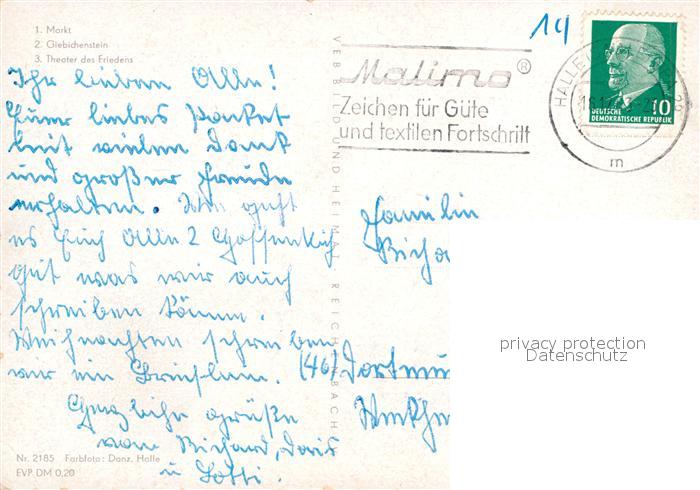 1. Markt
2. Giebichenstein
3. Theater des Friedens
14
Malimo®
Zeichen für Güte
und textilen Fortschritt
HALLE
10
DEUTSCHE
DEMOKRATISCHE REPUBLIK
m
VEB BILD UND HEIMAT REICHENBACH
Ihr lieben Alle!
Euer liebes Packet
mit vielen Dank
und großer Freude
erhalten. Wie geht
es Euch Alle? Hoffentlich
gut was wir auch
schreiben können.
Weihnachten schreiben
wir ein Brieflein.
Herzliche Grüße
von Richard, Doris
u Lotti.
Familie
Richa
(46) Dortmun
privacy protection
Datenschutz
Nr. 2185 Farbfoto: Danz, Halle
EVP DM 0,20